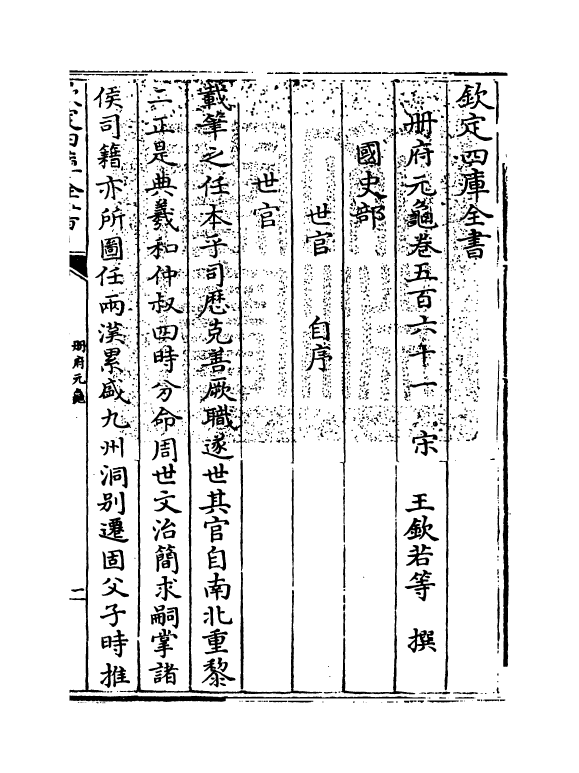 欽定四庫全書
冊府元龜卷五百六十一　宋　王欽若等　撰
國史部
世官　自序
世官
載筆之任本乎司歴克善厥職遂世其官自南北重黎
二正是典羲和仲叔四時分命周世文治簡求嗣掌諸
侯司籍亦所圖任兩漢累盛九州洞別遷固父子時推
欽定四庫全書
冊府元龜
二